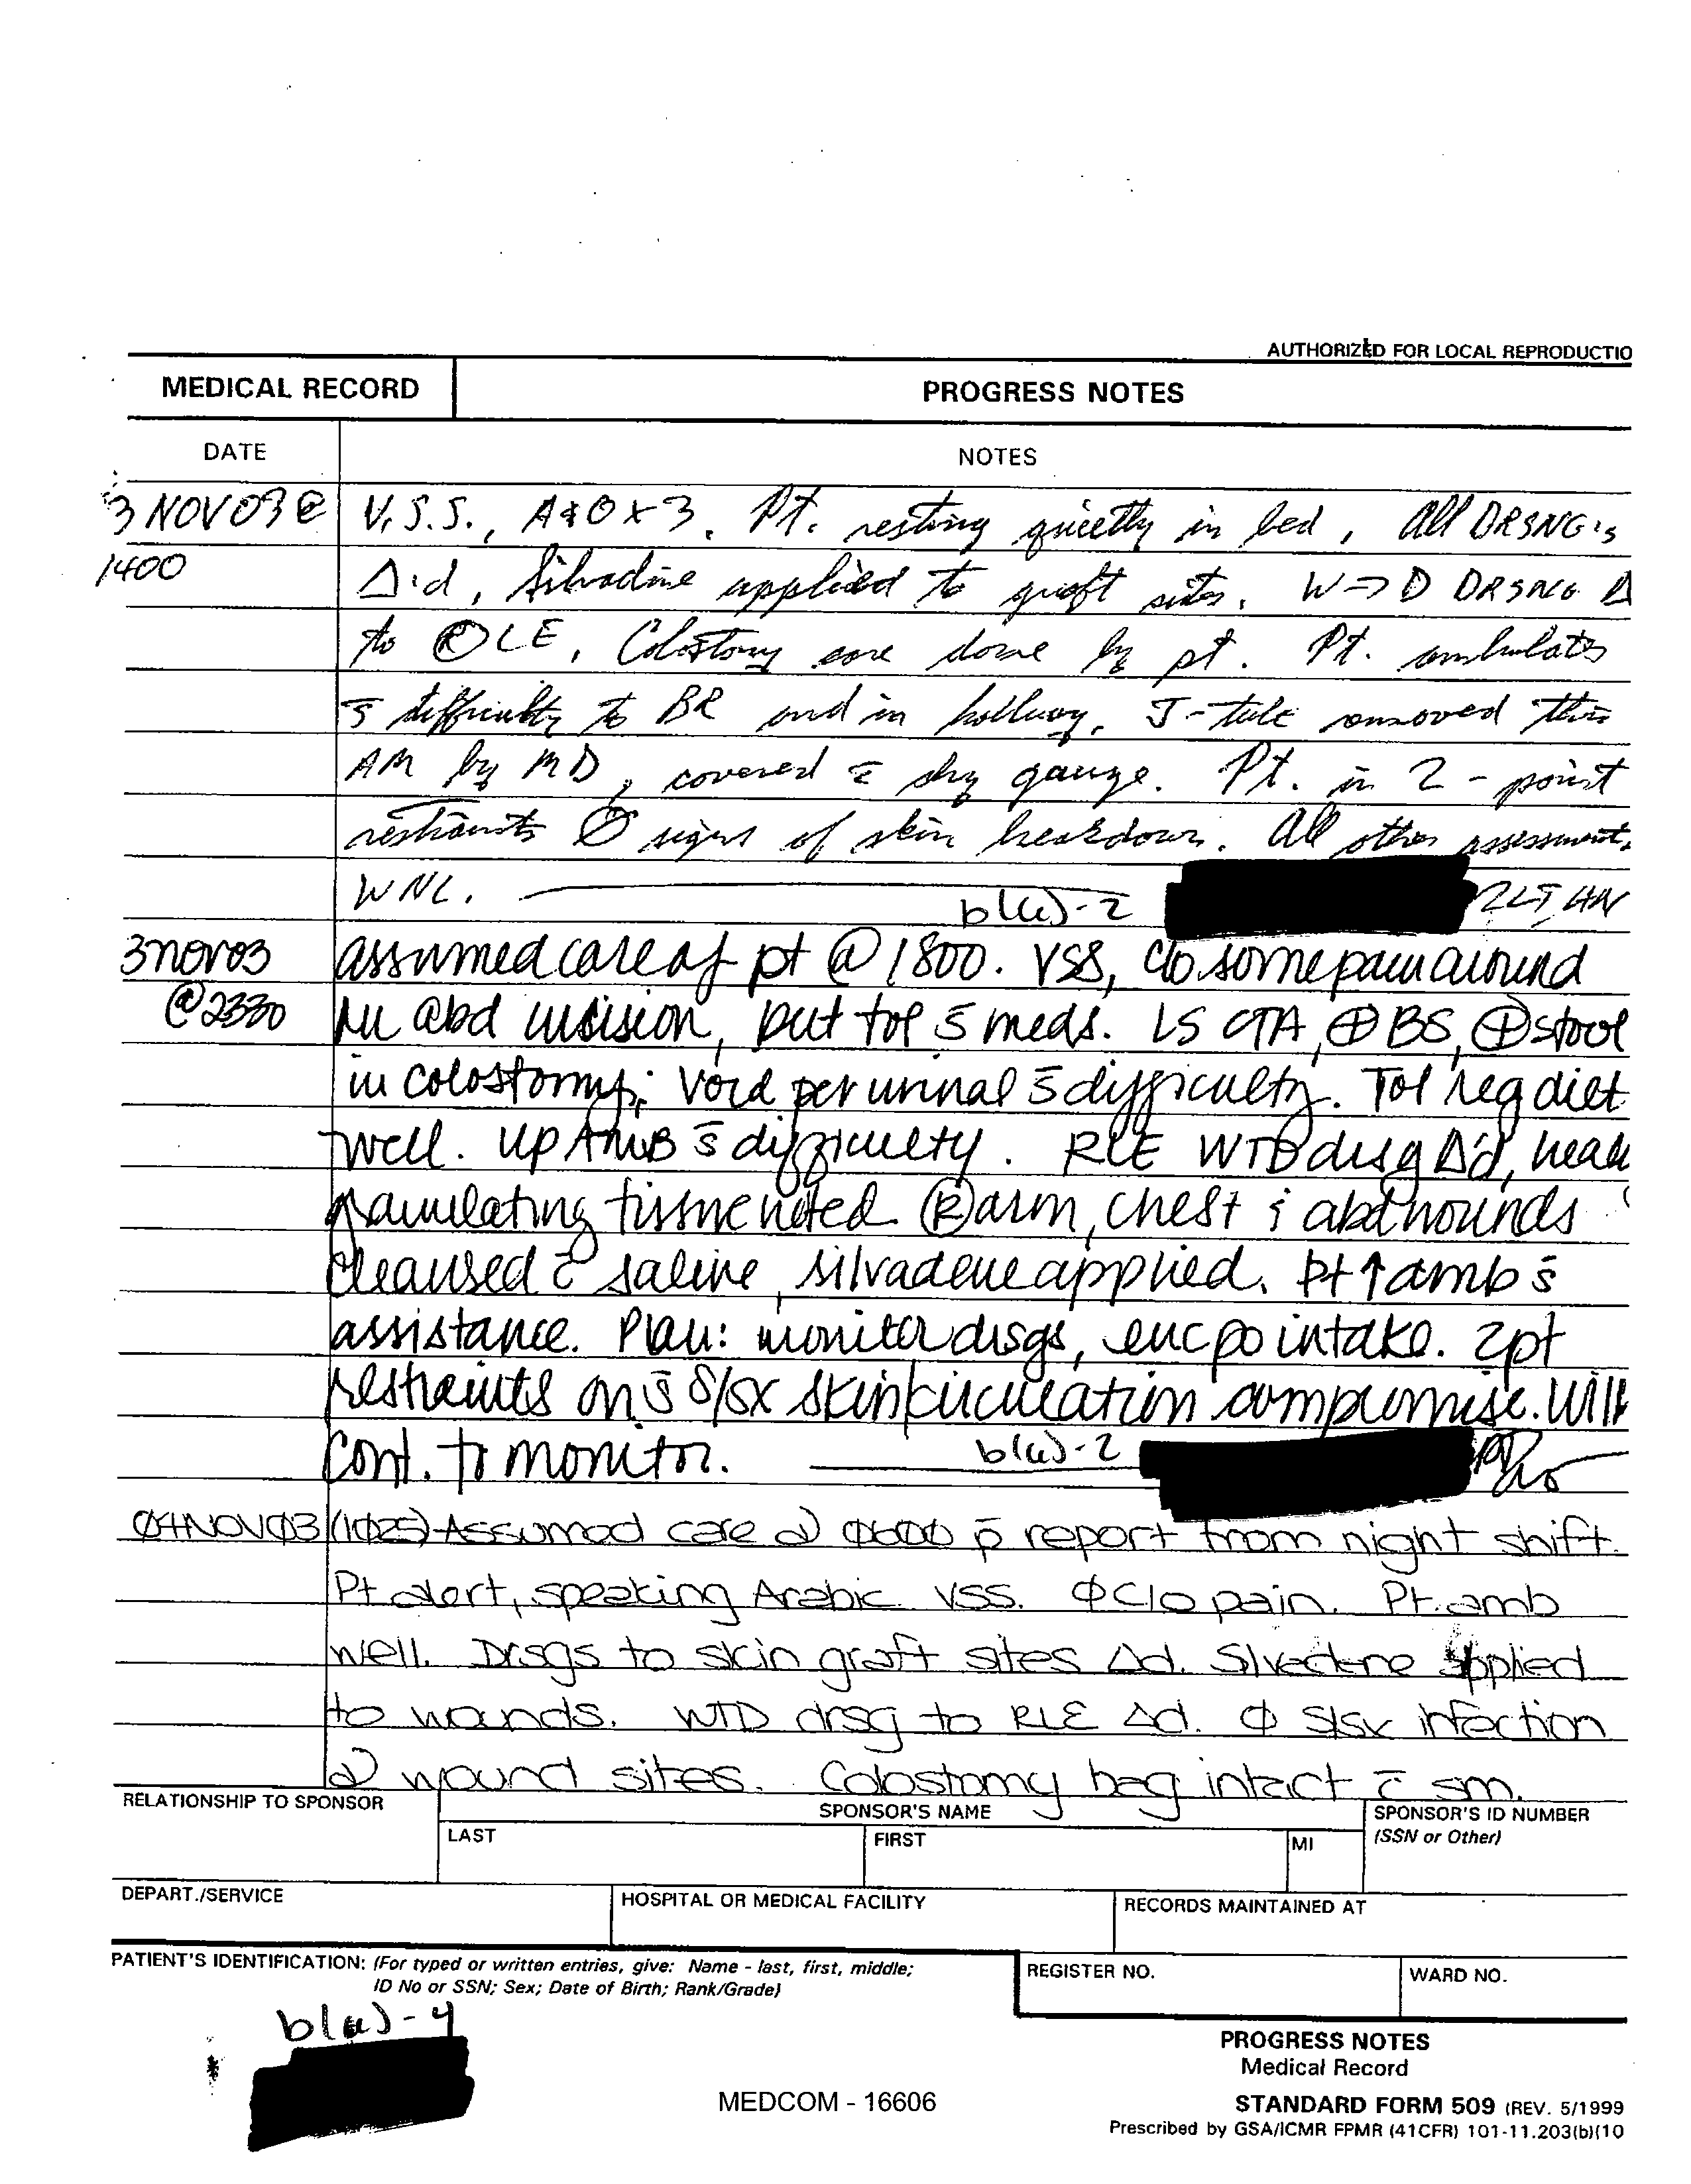 AUTHORIZED FOR LOCAL REPRODUCTIO
MEDICAL RECORD
PROGRESS NOTES
DATE
NOTES
3 NOV 03 @ V.S.S., A&O x 3. Pt. resting quietly in bed, All DRSNG's
1400 Δ'd, Silvadine applied to graft sites. W→D DRSNG Δ
to Ⓡ LE, Colostomy care done by pt. Pt. ambulates
s̄ difficulty to BR and in hallway. J-tube removed this
AM by MD, covered c̄ dry gauze. Pt. in 2-point
restraints Ø signs of skin breakdown. All other assessments
WNL. b(6)-2 2LT, AN
3nov03 assumed care of pt @ 1800. VSS, c/o some pain around
@2330 abd incision, but tol s̄ meds. LS CTA, ⊕BS, ⊕stool
in colostomy; void per urinal s̄ difficulty. Tol reg diet
well. Up AMB s̄ difficulty. RLE WTD drsg Δ'd,
granulating tissue noted. Ⓡ arm, chest & abd wounds
cleansed c̄ saline, silvadene applied. Pt ↑ amb s̄
assistance. Plan: monitor drsgs, enc po intake. 2pt
restraints on s̄ s/sx skin/circulation compromise. Will
cont. to monitor. b(6)-2
04NOV03 (1025) Assumed care @ 0600 p̄ report from night shift.
Pt alert, speaking Arabic. VSS. Ø C/o pain. Pt. amb
well. Drsgs to skin graft sites Δd. Silvedene applied
to wounds. WTD drsg to RLE Δd. Ø s/sx infection
@ wound sites. Colostomy bag intact c̄ sm.
RELATIONSHIP TO SPONSOR
SPONSOR'S NAME
SPONSOR'S ID NUMBER
(SSN or Other)
LAST
FIRST
MI
DEPART./SERVICE
HOSPITAL OR MEDICAL FACILITY
RECORDS MAINTAINED AT
PATIENT'S IDENTIFICATION: (For typed or written entries, give: Name - last, first, middle;
ID No or SSN; Sex; Date of Birth; Rank/Grade)
REGISTER NO.
WARD NO.
b(6)-4
PROGRESS NOTES
Medical Record
MEDCOM - 16606
STANDARD FORM 509 (REV. 5/1999
Prescribed by GSA/ICMR FPMR (41CFR) 101-11.203(b)(10